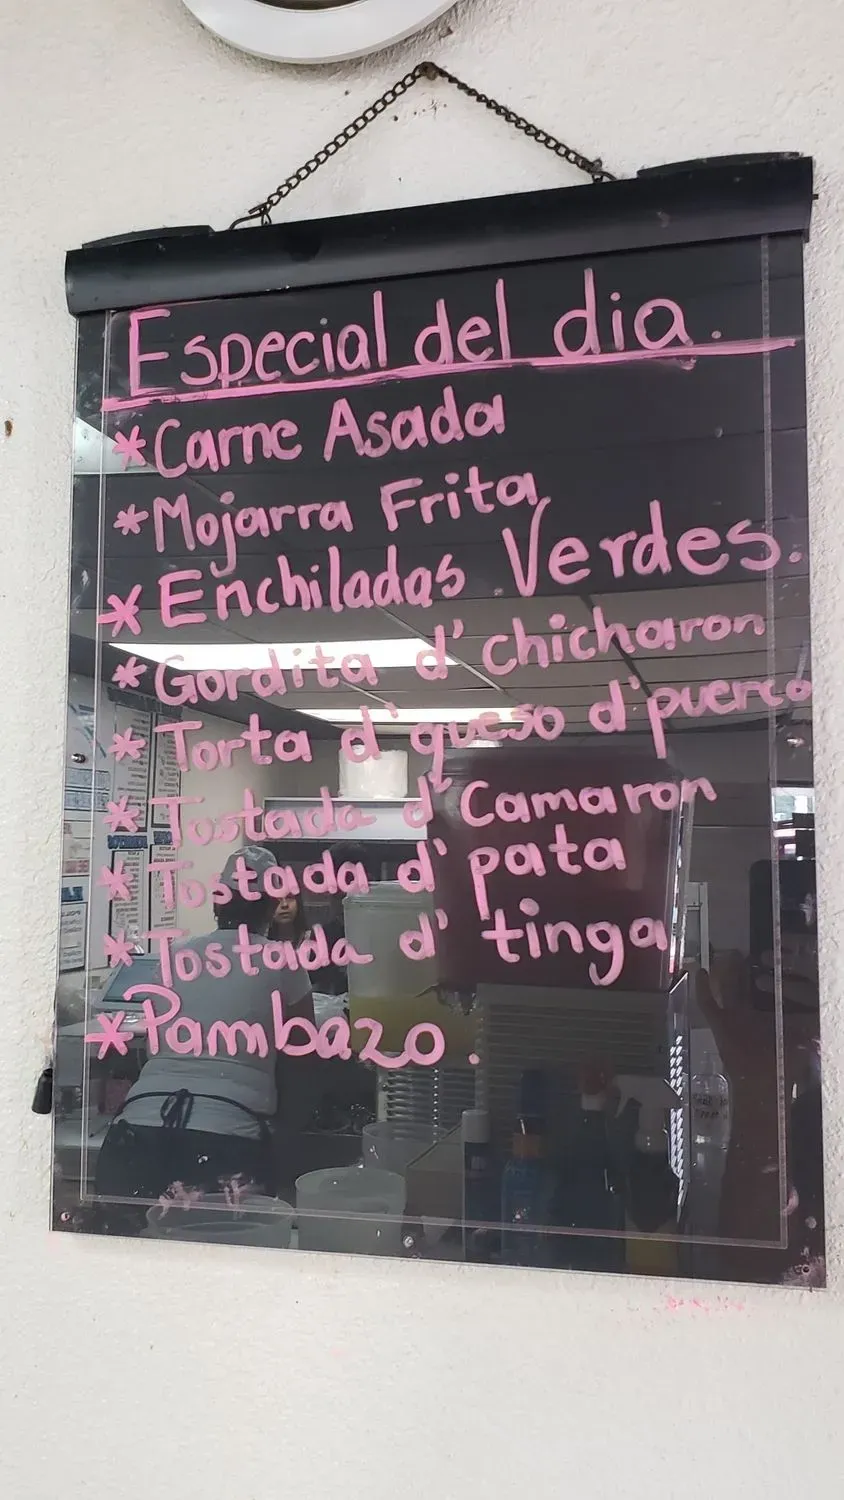 Especial del dia.
*Carne Asada
*Mojarra Frita
*Enchiladas Verdes.
*Gordita d' chicharon
*Torta d' queso d' puerco
*Tostada d' Camaron
*Tostada d' pata
*Tostada d' tinga
*Pambazo.